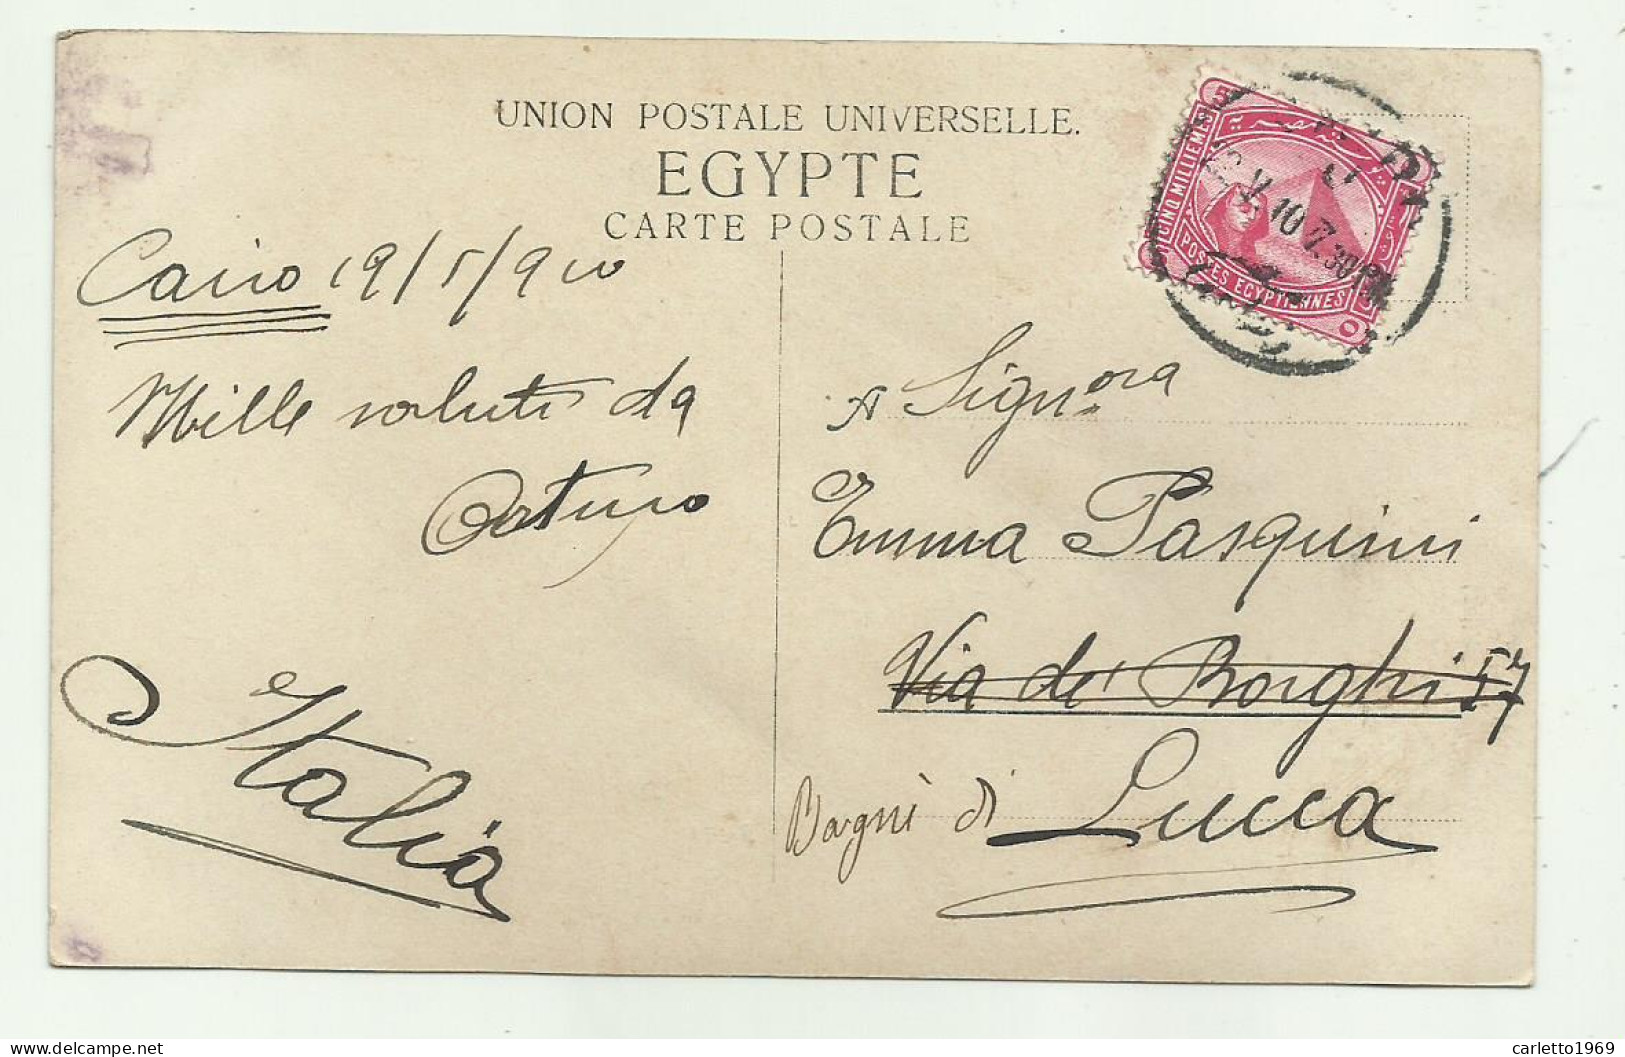 UNION POSTALE UNIVERSELLE.
EGYPTE
CARTE POSTALE
Cairo 19/5/910
Mille saluti da
Arturo
Italia
CINQ MILLIEMES
POSTES EGYPTIENNES
5
V. 10 7.30 PM
A Signora
Emma Pasquini
Via de' Borghi 57
Bagni di Lucca
carletto1969
www.delcampe.net